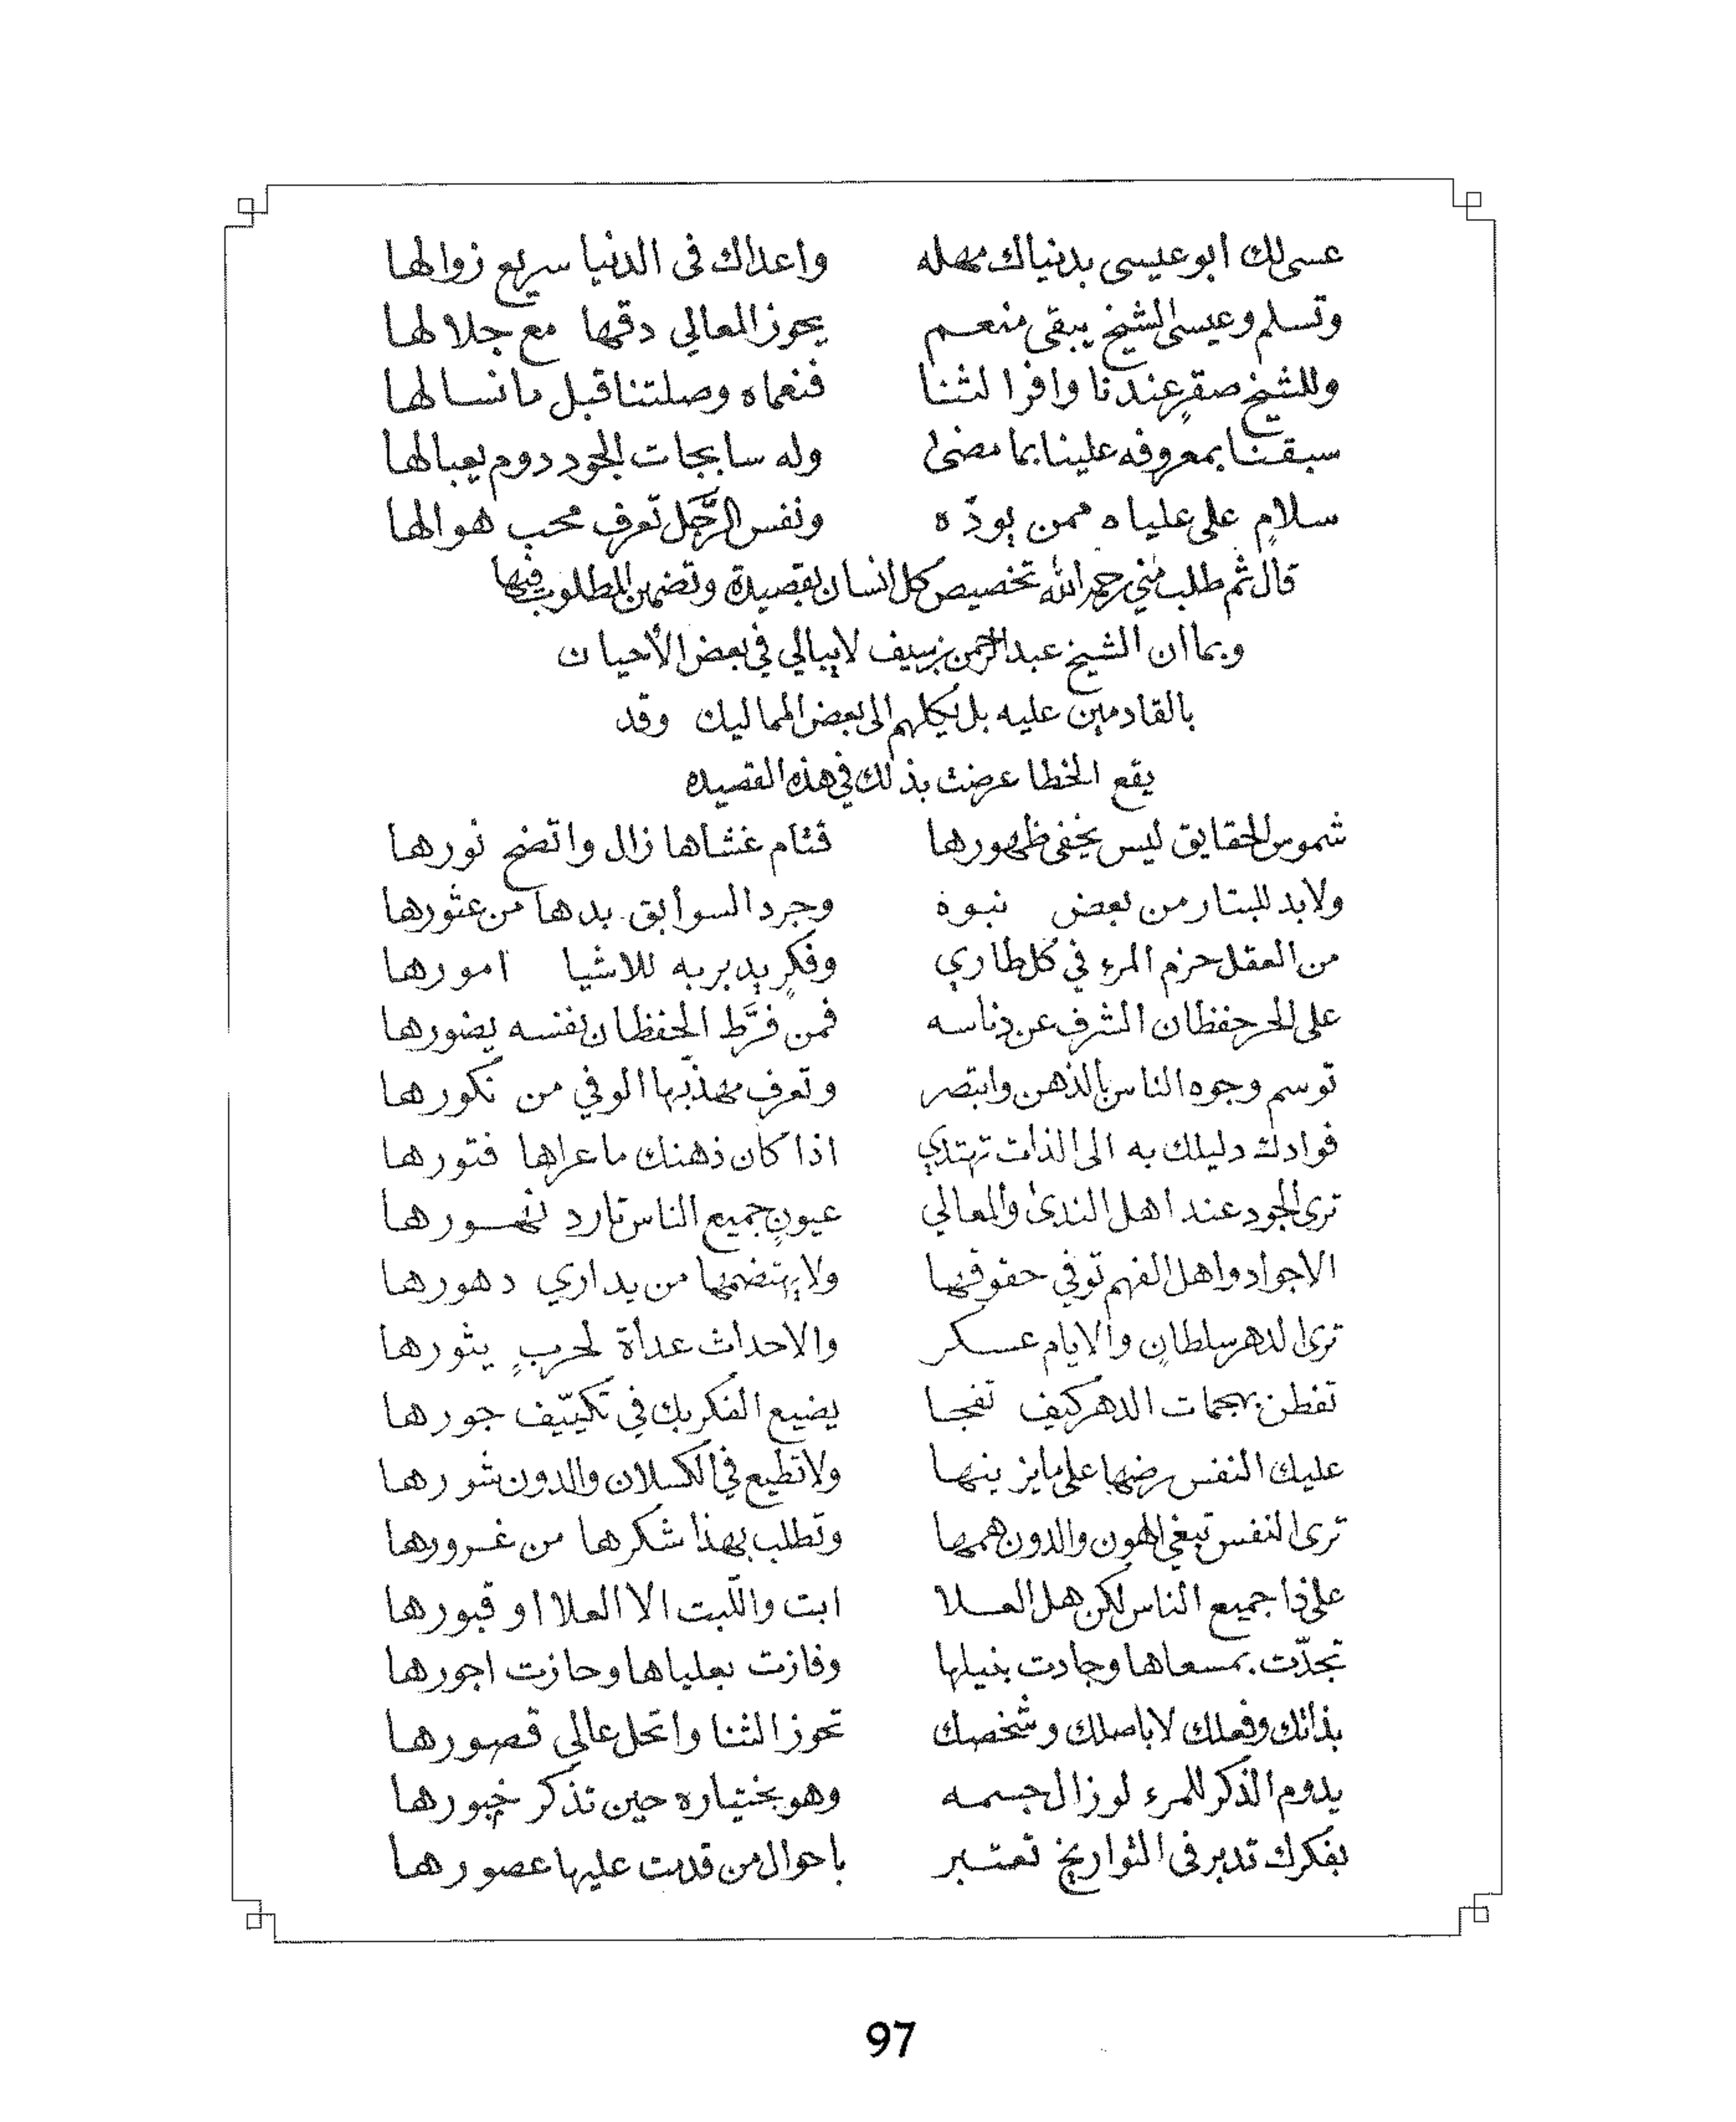 عسى لك ابو عيسى بدنياك مهله واعداك فى الدنيا سريع زوالها
وتسلم وعيسى الشيخ يبقى منعم يحوز المعالي دقها مع جلالها
وللشيخ صقرٍ عندنا وافر الثنا فنعماه وصلتنا قبل ما نسالها
سبقنا بمعروفه علينا بما مضى وله سابجات الجود دوم يعبالها
سلامٍ على علياه ممن يودّه ونفس الرَّجل تعرف محب هوالها
قال ثم طلب مني رحمه الله تخصيص كل انسان بقصيدة وتضمين المطلوب فيها
وبما ان الشيخ عبدالرحمن بن سيف لا يبالي في بعض الأحيان
بالقادمين عليه بل يكلهم الى بعض المماليك وقد
يقع الخطا عرضت بذلك في هذه القصيده
شموس الحقايق ليس يخفى ظهورها قتام غشاها زال واتضح نورها
ولابد للبتار من بعض نبوه وجرد السوابق بدها من عثورها
من العقل حزم المرء في كل طاري وفكرٍ يدبر به للاشيا امورها
على الحر حفظان الشرف عن دناسه فمن فرَّط الحفظان نفسه يضورها
توسم وجوه الناس بالذهن وابتصر وتعرف مهذّبها الوفي من نكورها
فوادك دليلك به الى الذات تهتدي اذا كان ذهنك ما عراها فتورها
ترى الجود عند اهل الندى والمعالي عيونٍ جميع الناس تارد نهورها
الاجواد واهل الفهم توفي حقوقها ولا يهتضمها من يداري دهورها
ترى الدهر سلطانٍ والايام عسكر والاحداث عداة لحربٍ يثورها
تفطن بهجمات الدهر كيف تفجا يضيع الفكر بك في تكييّف جورها
عليك النفس رضها على ما يزينها ولا تطيع في الكسلان والدون شورها
ترى النفس تبغي الهون والدون همها وتطلب بهذا شكرها من غرورها
على ذا جميع الناس لكن هل العلا ابت واللّبت الا العلا او قبورها
تجدّت بمسعاها وجادت بنيلها وفازت بعلياها وحازت اجورها
بذاتك وفعلك لا باصلك وشخصك تحوز الثنا واتحل عالي قصورها
يدوم الذكر للمرء لو زال جسمه وهو بختياره حين تذكر خبورها
بفكرك تدبر فى التواريخ تعتبر باحوال من قدمت عليها عصورها
97